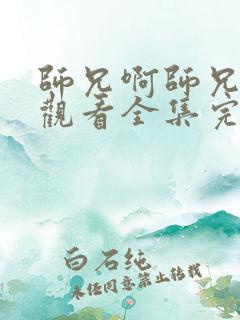 師兄啊師兄
觀看全集完
白石纯
未经同意禁止转载